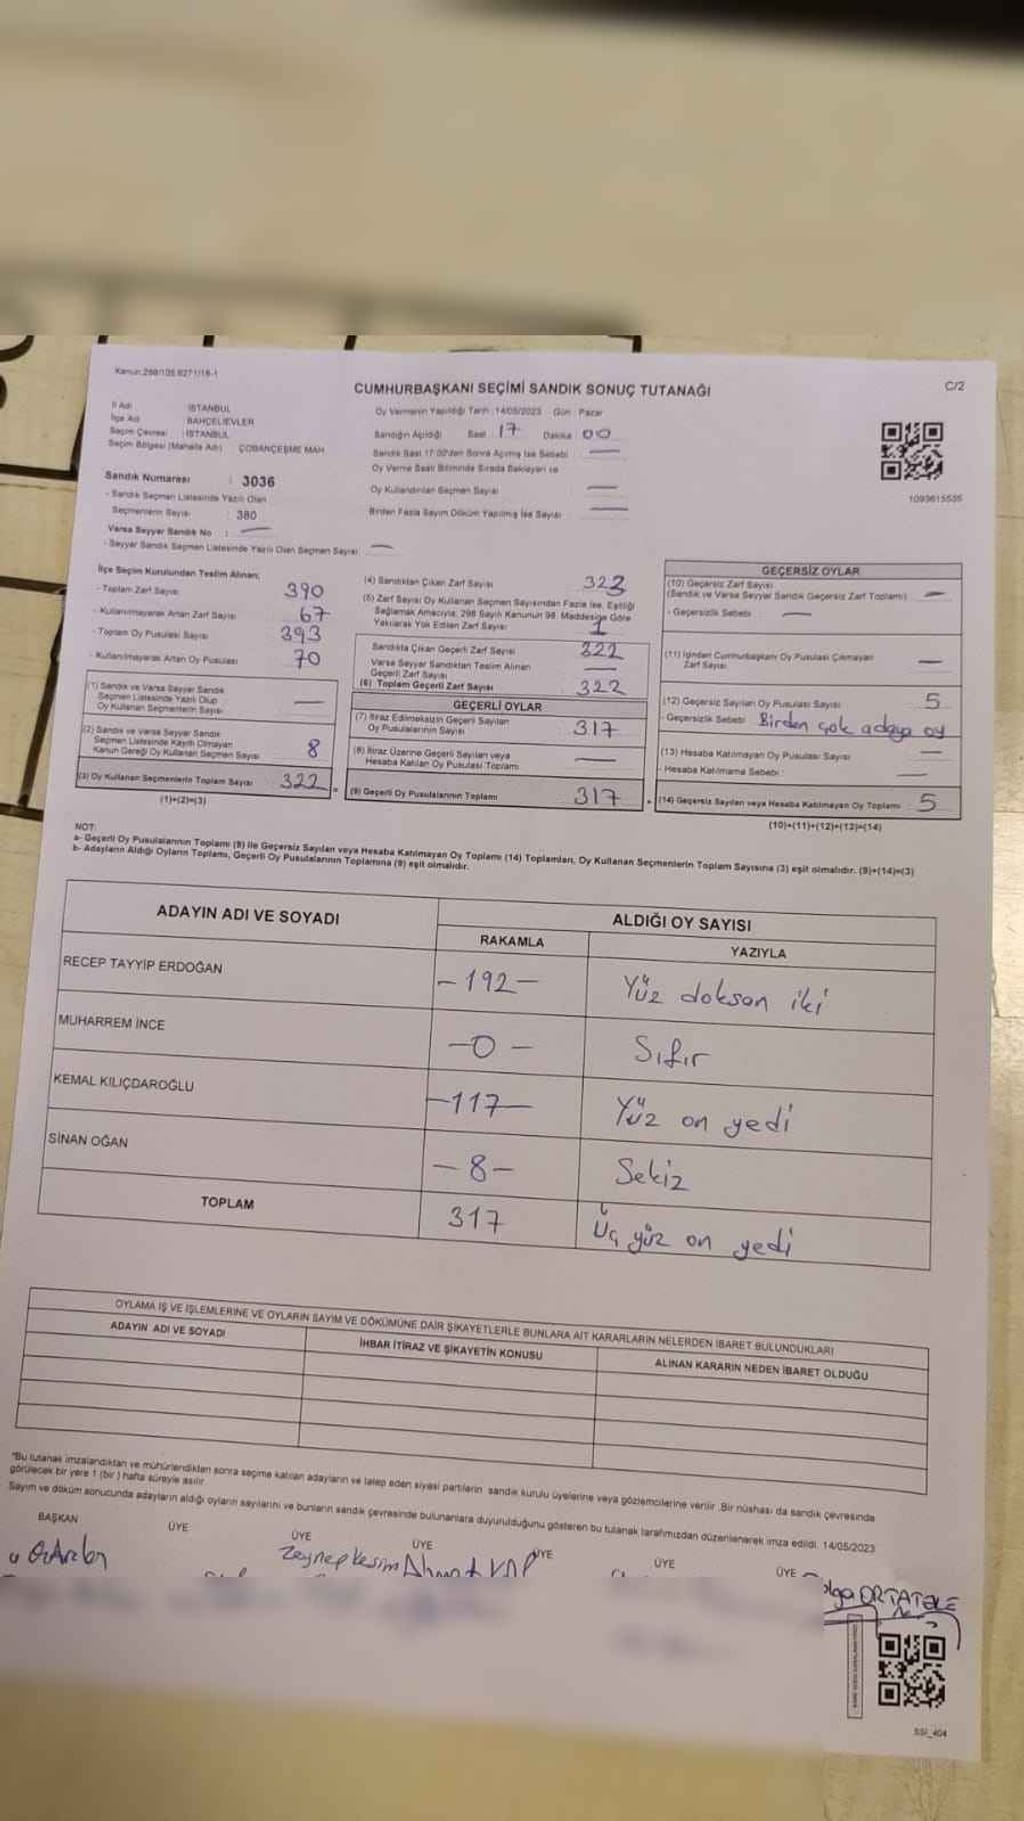 Kanun:298/105,6271/18-1
CUMHURBAŞKANI SEÇİMİ SANDIK SONUÇ TUTANAĞI
C/2
İl Adı : İSTANBUL
İlçe Adı : BAHÇELİEVLER
Seçim Çevresi : İSTANBUL
Seçim Bölgesi (Mahalle Adı) : ÇOBANÇEŞME MAH
Oy Vermenin Yapıldığı Tarih :14/05/2023 Gün : Pazar
Sandığın Açıldığı Saat : 17 Dakika : 00
Sandık Saat 17:00'den Sonra Açılmış İse Sebebi : —
Oy Verme Saati Bitiminde Sırada Bekleyen ve
Oy Kullandırılan Seçmen Sayısı —
Birden Fazla Sayım Döküm Yapılmış İse Sayısı —
1093615535
Sandık Numarası : 3036
- Sandık Seçmen Listesinde Yazılı Olan
Seçmenlerin Sayısı : 380
Varsa Seyyar Sandık No : —
- Seyyar Sandık Seçmen Listesinde Yazılı Olan Seçmen Sayısı : —
İlçe Seçim Kurulundan Teslim Alınan;
- Toplam Zarf Sayısı 390
- Kullanılmayarak Artan Zarf Sayısı 67
- Toplam Oy Pusulası Sayısı 393
- Kullanılmayarak Artan Oy Pusulası 70
(1) Sandık ve Varsa Seyyar Sandık
Seçmen Listesinde Yazılı Olup
Oy Kullanan Seçmenlerin Sayısı —
(2) Sandık ve Varsa Seyyar Sandık
Seçmen Listesinde Kayıtlı Olmayan
Kanun Gereği Oy Kullanan Seçmen Sayısı 8
(3) Oy Kullanan Seçmenlerin Toplam Sayısı 322
(1)+(2)=(3)
(4) Sandıktan Çıkan Zarf Sayısı 323
(5) Zarf Sayısı Oy Kullanan Seçmen Sayısından Fazla İse, Eşitliği
Sağlamak Amacıyla, 298 Sayılı Kanunun 98. Maddesine Göre
Yakılarak Yok Edilen Zarf Sayısı 1
Sandıkta Çıkan Geçerli Zarf Sayısı 322
Varsa Seyyar Sandıktan Teslim Alınan
Geçerli Zarf Sayısı —
(6) Toplam Geçerli Zarf Sayısı 322
GEÇERLİ OYLAR
(7) İtiraz Edilmeksizin Geçerli Sayılan
Oy Pusulalarının Sayısı 317
(8) İtiraz Üzerine Geçerli Sayılan veya
Hesaba Katılan Oy Pusulası Toplamı —
(9) Geçerli Oy Pusulalarının Toplamı 317
GEÇERSİZ OYLAR
(10) Geçersiz Zarf Sayısı
(Sandık ve Varsa Seyyar Sandık Geçersiz Zarf Toplamı) —
- Geçersizlik Sebebi : —
(11) İçinden Cumhurbaşkanı Oy Pusulası Çıkmayan
Zarf Sayısı —
(12) Geçersiz Sayılan Oy Pusulası Sayısı 5
- Geçersizlik Sebebi : Birden çok adaya oy
(13) Hesaba Katılmayan Oy Pusulası Sayısı —
- Hesaba Katılmama Sebebi : —
(14) Geçersiz Sayılan veya Hesaba Katılmayan Oy Toplamı 5
(10)+(11)+(12)+(13)=(14)
NOT:
a- Geçerli Oy Pusulalarının Toplamı (9) ile Geçersiz Sayılan veya Hesaba Katılmayan Oy Toplamı (14) Toplamları, Oy Kullanan Seçmenlerin Toplam Sayısına (3) eşit olmalıdır. (9)+(14)=(3)
b- Adayların Aldığı Oyların Toplamı, Geçerli Oy Pusulalarının Toplamına (9) eşit olmalıdır.
ADAYIN ADI VE SOYADI
ALDIĞI OY SAYISI
RAKAMLA YAZIYLA
RECEP TAYYİP ERDOĞAN -192- Yüz doksan iki
MUHARREM İNCE -0- Sıfır
KEMAL KILIÇDAROĞLU -117- Yüz on yedi
SİNAN OĞAN -8- Sekiz
TOPLAM 317 Üç yüz on yedi
OYLAMA İŞ VE İŞLEMLERİNE VE OYLARIN SAYIM VE DÖKÜMÜNE DAİR ŞİKAYETLERLE BUNLARA AİT KARARLARIN NELERDEN İBARET BULUNDUKLARI
ADAYIN ADI VE SOYADI İHBAR İTİRAZ VE ŞİKAYETİN KONUSU ALINAN KARARIN NEDEN İBARET OLDUĞU
"Bu tutanak imzalandıktan ve mühürlendikten sonra seçime katılan adayların ve talep eden siyasi partilerin sandık kurulu üyelerine veya gözlemcilerine verilir. Bir nüshası da sandık çevresinde
görülecek bir yere 1 (bir) hafta süreyle asılır.
Sayım ve döküm sonucunda adayların aldığı oyların sayılarını ve bunların sandık çevresinde bulunanlara duyurulduğunu gösteren bu tutanak tarafımızdan düzenlenerek imza edildi. 14/05/2023
BAŞKAN ÜYE ÜYE ÜYE ÜYE ÜYE ÜYE
Zeynep Kesim Ahmet
ORTATEPE
SSİ_404